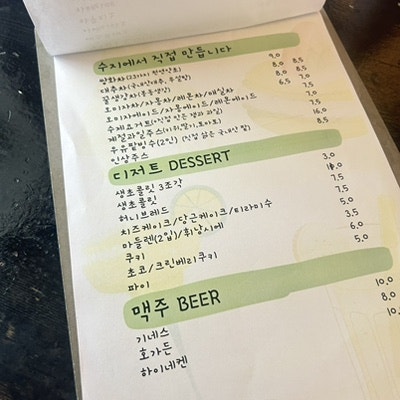 수지에서 직접 만듭니다
쌍화차(23가지 천연약초) 9.0
대추차(국내산대추, 무설탕) 8.0 8.5
꿀생강차(봉동생강) 8.0 8.5
오미자차/자몽차/레몬차/매실차 6.5 7.0
오미자에이드/자몽에이드/레몬에이드 7.5
수제요거트(직접 만든 잼과 과일) 7.0
계절과일주스(키위,딸기,토마토) 7.5
우유팥빙수(2인) (직접 삶은 국내산 팥) 16.0
인삼주스 8.5
디저트 DESSERT
생초콜릿 3조각 3.0
생초콜릿
허니브레드 7.5
치즈케이크/당근케이크/티라미수 7.5
마들렌(2입)/휘낭시에 5.0
쿠키 3.5
초코/크린베리쿠키 6.0
파이 5.0
맥주 BEER
기네스 10.0
호가든 8.0
하이네켄